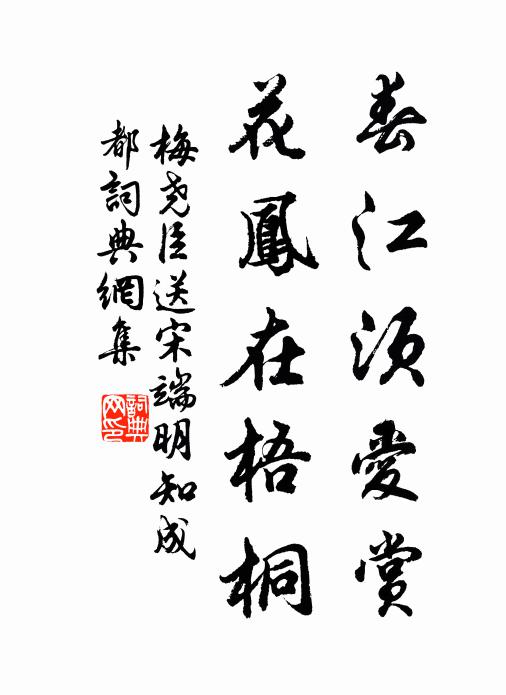 春江須愛賞
花鳳在梧桐
梅堯臣送宋端明知成
都詞典網集
詞典網印